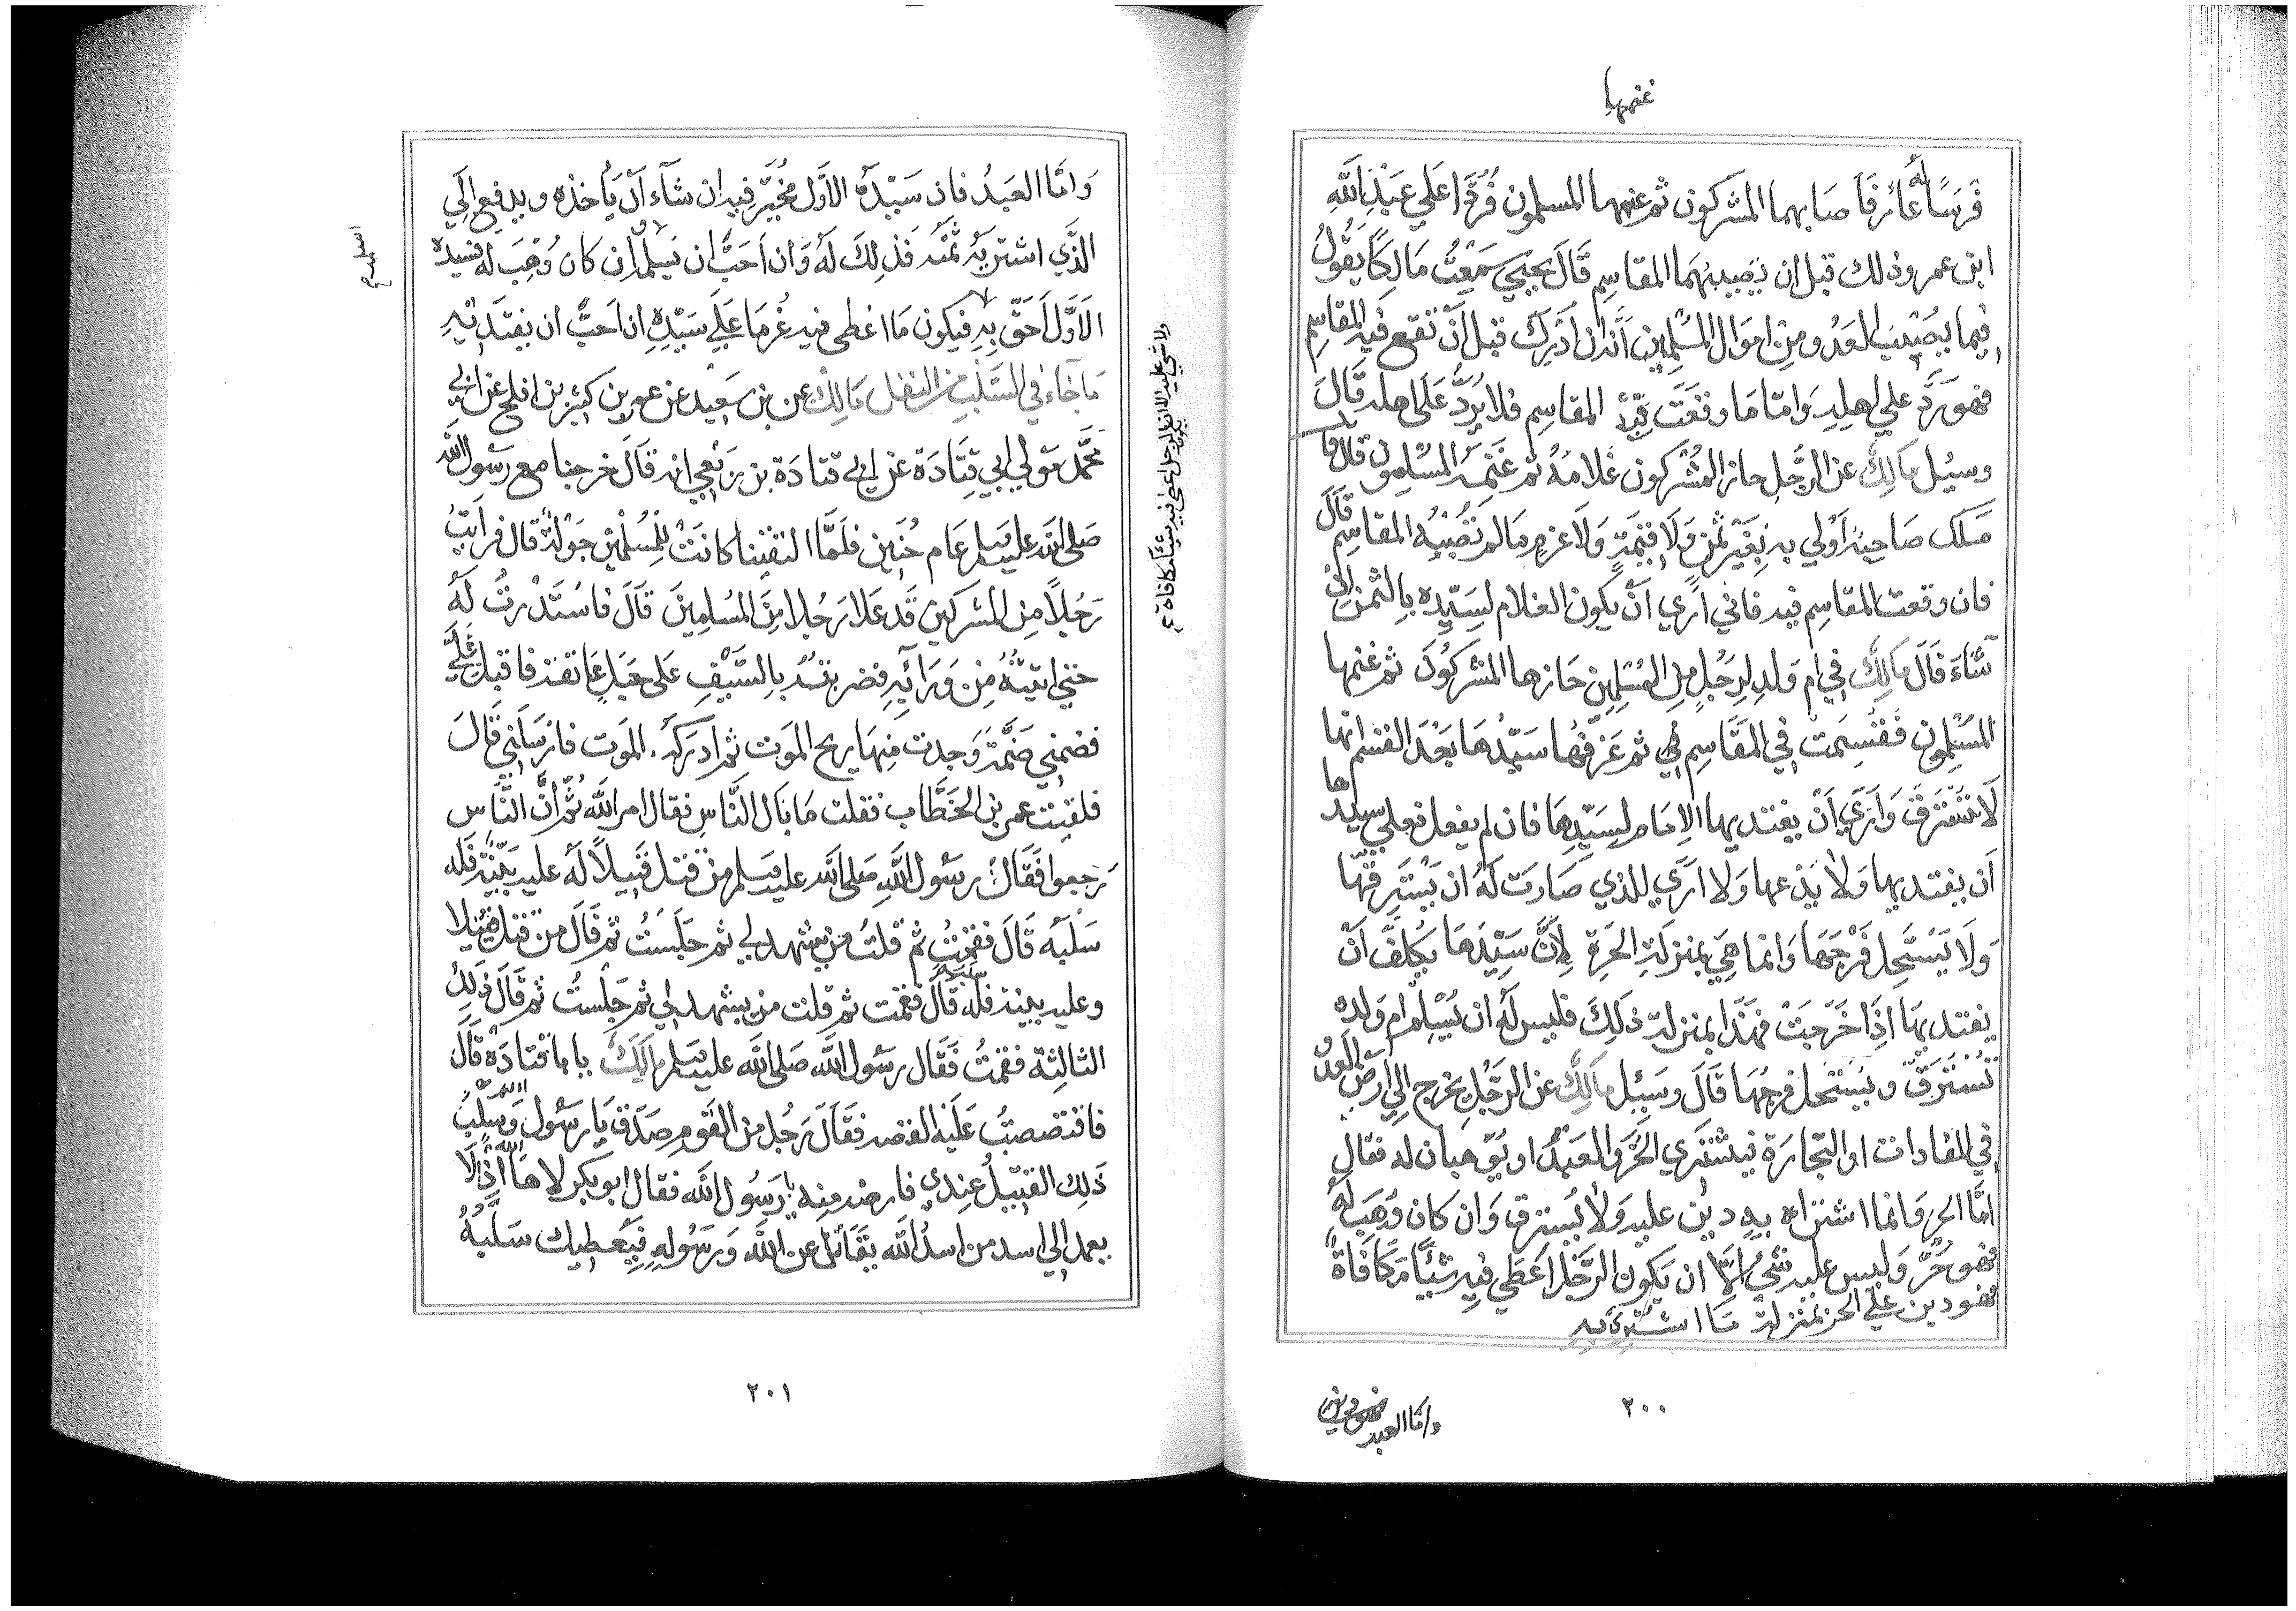 غنمها
فَرَسًا لَهُ عائر فَأصابهما المشركون ثم غنمهما المسلمون فَرُدَّا عَلي عَبْدِ اللَّهِ
ابن عمر وذلك قبل ان تصيبهَمَا المقاسِم قَالَ يحيي سَمِعْتُ مَالِكًا يَقُولُ
فيما يُصِيبُ العدو مِن اموَال المُسْلِمِين أنه ان أُدْرِكَ قبل أَنْ تقع فيه المقاسِم
فهو رَدٌّ علي اهلِهِ وَامّا مَا وقعَتَ فِيْهِ المقاسِم فلا يُرَدُّ عَلَى اهله قَالَ
وسيُل مَالِكٌ عن الرَّجُلِ حاز المُشْرِكون غلامَهُ ثم غَنِمَهُ المسْلِمون قال ما
مَلك صَاحِبُهُ أَوْلَي بِهِ بِغَيْرِ ثَمَنٍ وَلَا قِيْمَةٍ وَلَا غرْمٍ مَا لَم تُصِبْهُ المقاسِم قَالَ
فان وقعت المقاسِم فيه فاني أَرَي أَنْ يكون الغلام لِسَيِّدِه بِالثمن ان
شَاءَ قَالَ مَالِكٌ فِي ام وَلدِ لِرَجُلٍ مِن المُسْلِمِين حَازها المشركُونَ ثم غنمها
المسْلِمون فَقُسِمَتْ فِي المَقَاسِم ثم عَرَفَهَا سَيّدُهَا بَعْدَ القسْم انها
لَا تُسْتَرَقُّ وَأَرَي أَنْ يفتديها الإمَام لِسَيِّدِهَا فان لم يفعل فعلي سيدها
أن يفتديها وَلا يدعها وَلا ارَي للذي صَارَت لَهُ ان يَسْتَرِقَّهَا
وَلَا يَسْتَحِل فَرْجَهَا وَانما هِيَ بمنزلَةِ الحَرِة لِأَنَّ سَيِّدَهَا يُكلَّف أَنْ
يفتديهَا إذَا خَرَجَتْ فَهَذَا بمنزلة ذَلِكَ فليس لَهُ ان يُسْلِم ام وَلَدِه
تُسْتَرَقّ ويُسْتَحل فرجُهَا قَالَ وسَيُل مَالِكٌ عن الرّجُلِ يخرج الي ارضِ العَدُوِّ
في المفادات او التجارَة فيشْتَري الحُرَّ وَالعَبْدَ او يُوهبان له فقال
امّا الحر فَانما اشتراه بِهِ دين عليه وَلا يُسترق وَان كان وُهِبَ لَهُ
فهو حُرٌّ وَليس عليه شَيْءٌ إِلّا ان يَكون الرَّجُل أَعْطَي فِيهِ شَيْئًا مُكَافَاةً
فهو دين عَلَي الحر بمنزلة مَا اشتُرِيَ بِهِ
٢٠٠
وامّا العبد
وَامَّا العَبْدُ فان سَيّدَه الأَوّل مُخَيَّر فِيهِ ان شَاءَ أَنْ يَأخذه ويدفع الَي
الَّذِي اشتريه ثمنَه فَذلِكَ لَهُ وَان اَحَبَّ ان يُسْلِمَه وان كان وُهِبَ له فسيده
الأَوَّل أَحَقّ بِهِ فيكون مَا اعْطي فيه غُرْمًا عَلَي سَيّدِهِ ان اَحَبَّ ان يفتَديَهُ
اسلمه صح
ولا شي عليه الا ان يكون الرجل اعطي فيه شيئا مكافاة صح
مَا جَاءَ فِي السَّلَبِ مِنَ النفل مَالِكٌ عن بن سَعِيْد عن عمر بن كثير بن افلح عن ابي
مُحَمَّد مَوْلي ابي قتَادَة عن ابي قتادَة بن رِبْعي انه قَالَ خرجنا مع رَسُول الله
صَلى الله عليه وسلم عَام حُنَين فلمّا التقينا كانَتْ لِلْمُسْلمين جَوْلَة قال فرأيتُ
رَجُلًا مِن المشركين قَد عَلا رَجُلا مِنَ المُسلِمِينَ قَالَ فاسْتَدْرتُ لَهُ
حتي اتيتُهُ مِنْ وَرَائِهِ فضربتهُ بِالسَّيْفِ عَلى حَبْلِ عَاتقه فاقبل عَلَيَّ
فضمني ضَمَّةً وَجدت مِنهَا ريح المَوت ثم ادركَه الموت فارسَلَنِي قَالَ
فلقيت عمر بن الخَطَّاب فقلت مَا بَال النَّاسِ فقال امر اللَّه ثُمَّ أَنَّ النَّاس
رجعوا فَقَال رسُول اللَّه صَلى اللَّه عليه وسلم مَنْ قتل قَتِيلًا لَهُ عليه بَيّنَة فَله
سَلْبَه قَالَ فقمْتُ ثم قلتُ من يشهد لي ثم جَلَسْتُ ثم قَالَ من قتل قتيلا
وعليه بينة فله سلبه قَالَ فقمت ثم قلت من يشهد لي ثم جَلَستُ ثم قَالَ ذَلِكَ
الثالثة فقمتُ فَقَال رسُول اللَّه صَلى اللَّه عليه وسلم مَالَكَ يابا قتادَة قَالَ
فاقتصصتُ عَلَيْه القصه فقَالَ رَجُل من القَوم صَدَقَ يَا رسُول الله وَسَلَبُ
ذَلِك القتيل عِندي فارضه منه يا رَسُول الله فقال ابو بكر لا هَا الله اذًا لَا
يعمد الي اسد من اسد اللَّه يُقَاتِل عن اللَّه وَرَسُوله فَيُعطيك سَلَبَهُ
٢٠١